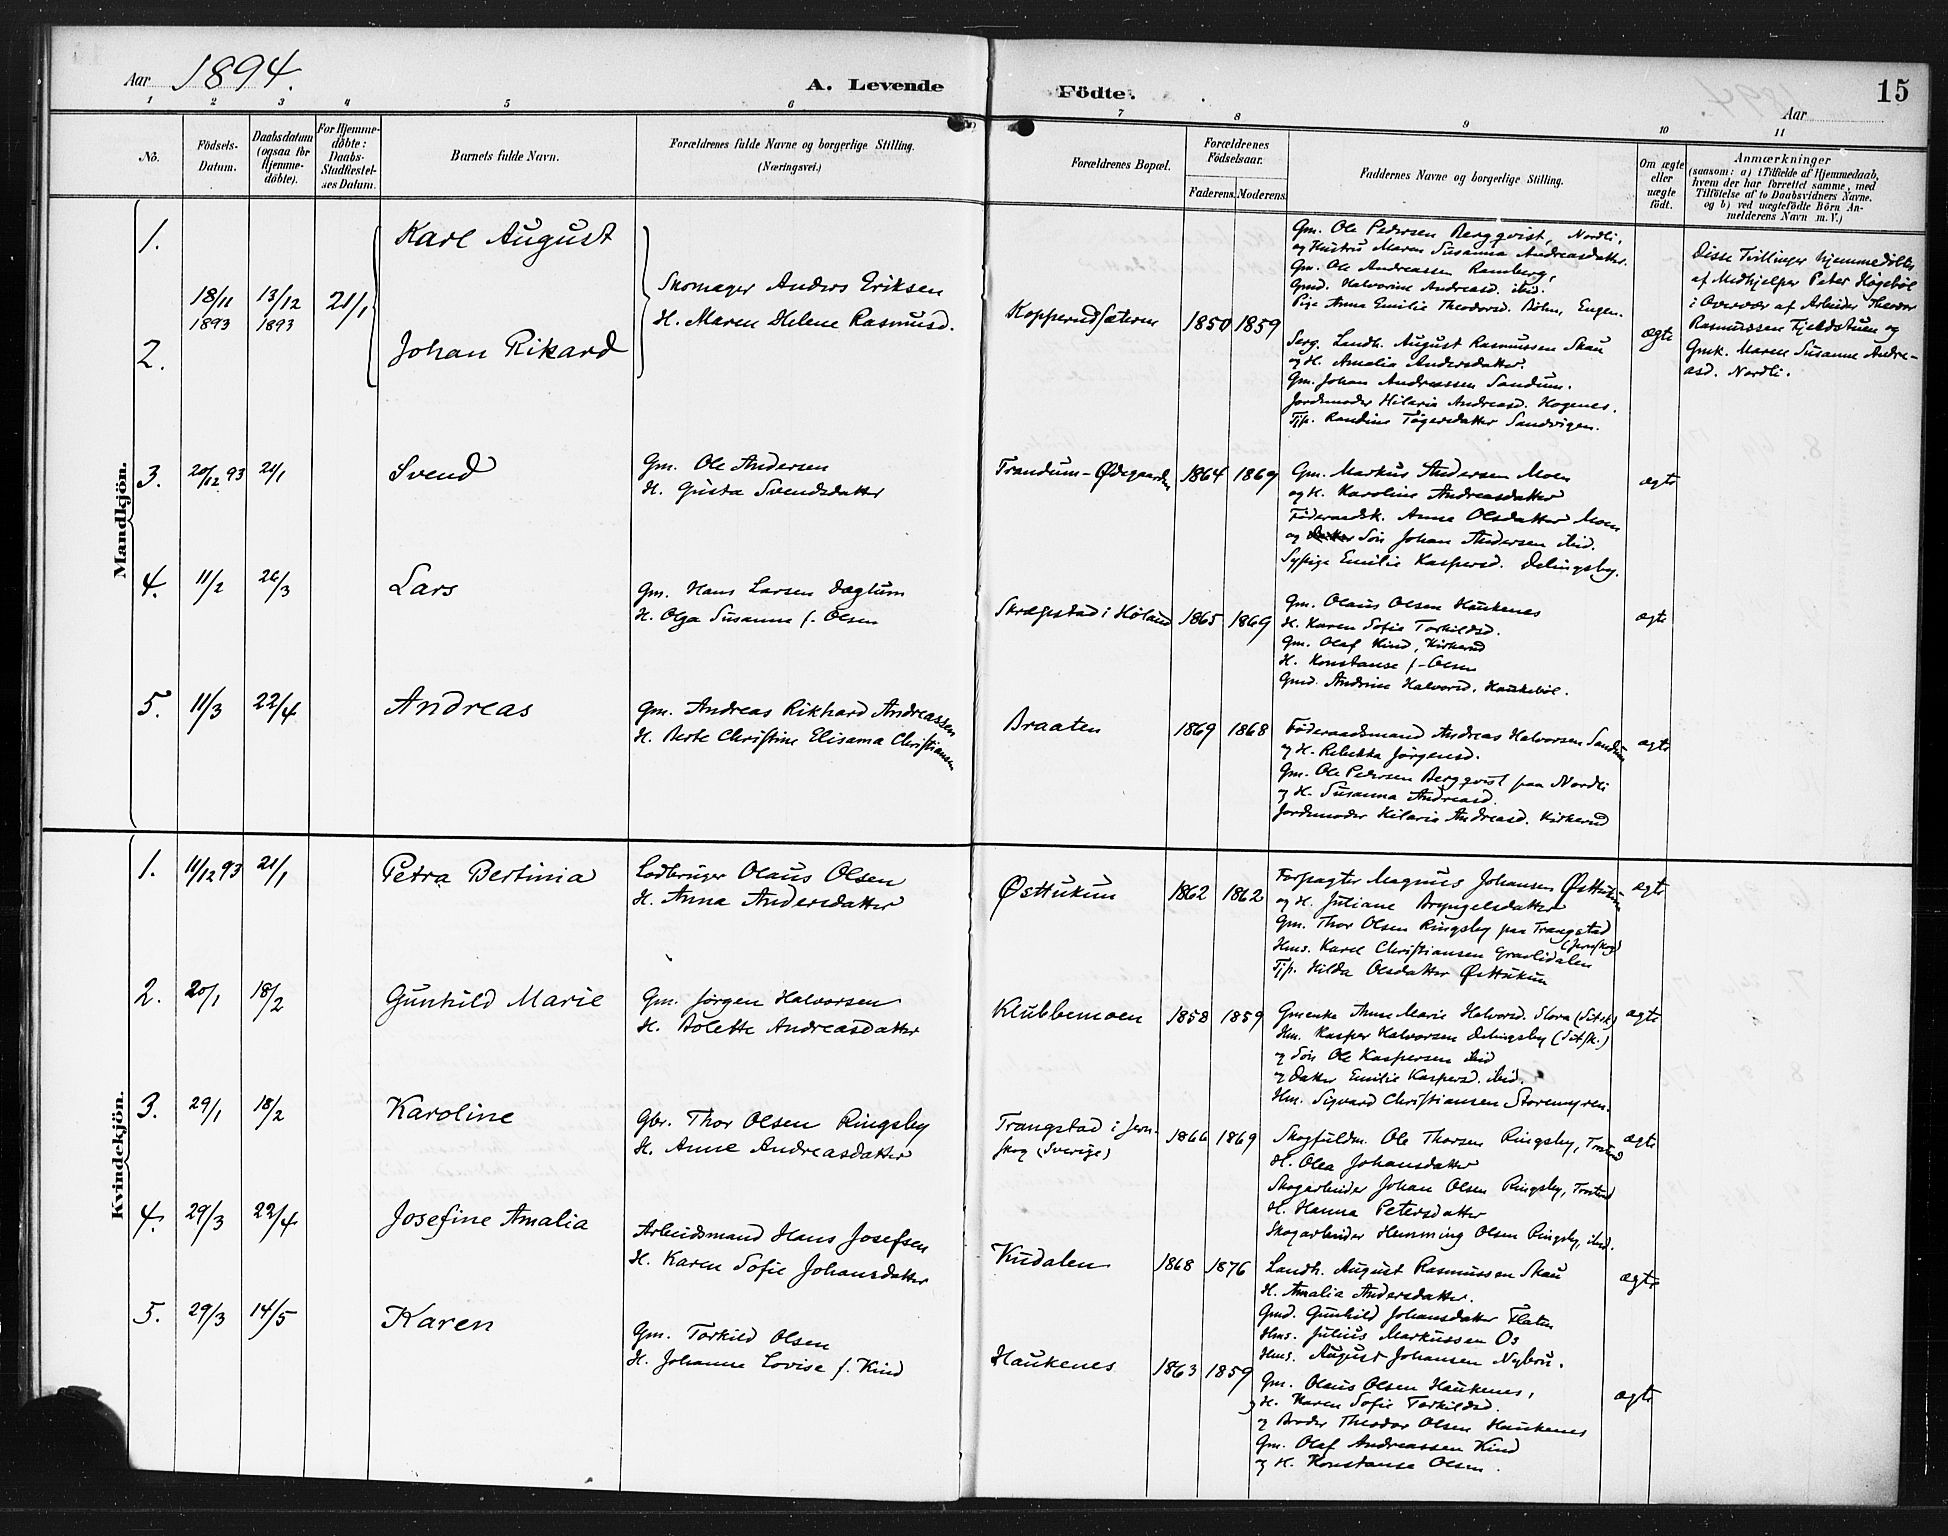 Aar 1894.
A. Levende Födte.
Aar
15
1 2 3 4 5 6 7 8 9 10 11
No.
Födsels-Datum.
Daabsdatum (ogsaa for Hjemmedöbte).
For Hjemmedöbte: Daabs-Stadfæstelses Datum.
Barnets fulde Navn.
Forældrenes fulde Navne og borgerlige Stilling. (Næringsvei.)
Forældrenes Bopæl.
Forældrenes Födselsaar.
Faderens. Moderens.
Faddernes Navne og borgerlige Stilling.
Om ægte eller uægte födt.
Anmærkninger
(saasom: a) i Tilfælde af Hjemmedaab, hvem der har forrettet samme, med Tilföielse af to Daabsvidners Navne. og b) ved uægtefödte Börn Anmelderens Navn m. V.)
Mandkjön.
1. Karl August
2. Johan Rikard
18/11 1893 13/12 1893 21/1
Skomager Anders Eriksen
H. Maren Helene Rasmusd.
Kopperudsæteren 1850 1859
Gm. Ole Pedersen Bergqvist, Nordli,
og Hustru Maren Susanna Andreasdatter.
Gm. Ole Andreassen Ramberg,
Gmd. Halvorine Andreasd. ibid.
Pige Anna Emilie Theodorsd. Böhn, Engen.
Serg. Landh. August Rasmussen Skau
og H. Amalia Andersdatter.
Gm. Johan Andreassen Sandum.
Jordemoder Hilaria Andreasd. Hogenes.
Tjp. Randine Tögersdatter Sandvigen.
ægte
Disse Tvillinger hjemmedöbtes
af Medhjelper Peter Högsböl
i Overvær af Arbeider Theodor
Rasmussen Fjeldstuen og
Gmk. Maren Susanne Andre-
asd. Nordli.
3. 20/12 93 21/1 Svend
Gm. Ole Andersen
H. Gusta Svendsdatter
Trandum-Ødegaarden 1864 1869
Gm. Markus Andersen Moen
og H. Karoline Andreasdatter
Föderaadsk. Anne Olsdatter Moen
og Sön Johan Andersen ibid.
Sypige Emilie Kaspersd. Delingsby.
ægte
4. 11/2 26/3 Lars
Gm. Hans Larsen Daglum
H. Olga Susanna f. Olsen
Skrægstad i Höland 1865 1869
Gm. Olaus Olsen Haukenes
H. Karen Sofie Torkildsd.
Gm. Olaf Kind, Kirkerud
H. Konstanse f. Olsen
Gmd. Andrine Halvorsd. Haukeböl.
ægte
5. 11/3 22/4 Andreas
Gm. Andreas Rikhard Andreassen
H. Berte Christine Elisama Christiansen
Braaten 1869 1868
Föderaadsmand Andreas Halvorsen Sandum
og H. Rebekka Jörgensd.
Gm. Ole Pedersen Bergqvist paa Nordli
og H. Susanna Andreasd.
Jordemoder Hilaria Andreasd. Kirkerud
ægte
Kvindekjön.
1. 11/12 93 21/1 Petra Bertinia
Lodbruger Olaus Olsen
H. Anna Andersdatter
Østtukun 1862 1862
Forpagter Magnus Johansen Østtukun
og H. Juliane Bryngelsdatter
Gm. Thor Olsen Ringsby paa Trangstad
(Jernskog)
Hms. Karel Christiansen Graalidalen
Tjp. Hilda Olsdatter Østtukun
ægte
2. 20/1 18/2 Gunhild Marie
Gm. Jörgen Halvorsen
H. Bolette Andreasdatter
Klubbemoen 1858 1859
Gmenke Anne Marie Halvorsd. Slora (Setsk)
Hm. Kasper Halvorsen Delingsby (Setsk.)
og Sön Ole Kaspersen ibid
og Datter Emilie Kaspersd. ibid.
Hm. Sigvard Christiansen Storemyren.
ægte
3. 29/1 18/2 Karoline
Gbr. Thor Olsen Ringsby
H. Anne Andreasdatter
Trangstad i Jern-
skog (Sverige) 1866 1869
Skogfuldm. Ole Thorsen Ringsby,
H. Olea Johansdatter
Skogarbeider Johan Olsen Ringsby,
H. Hanna Petersdatter
Skogarbeider Hemming Olsen Ringsby, ibid.
ægte
4. 29/3 22/4 Josefine Amalia
Arbeidsmand Hans Josefsen
H. Karen Sofie Johansdatter
Kudalen 1868 1876
Landh. August Rasmussen Skau
H. Amalia Andersdatter.
Gmd. Gunhild Johansdatter Flaten
Hms. Julius Markussen Os
Hms. August Johansen Nybru.
ægte
5. 29/3 14/5 Karen
Gm. Torkild Olsen
H. Johanne Lovise f. Kind
Haukenes 1863 1859
Gm. Olaus Olsen Haukenes,
og H. Karen Sofie Torkildsd.
og Broder Theodor Olsen Haukenes
Gm. Olaf Andreassen Kind
og H. Konstanse Olsen.
ægte